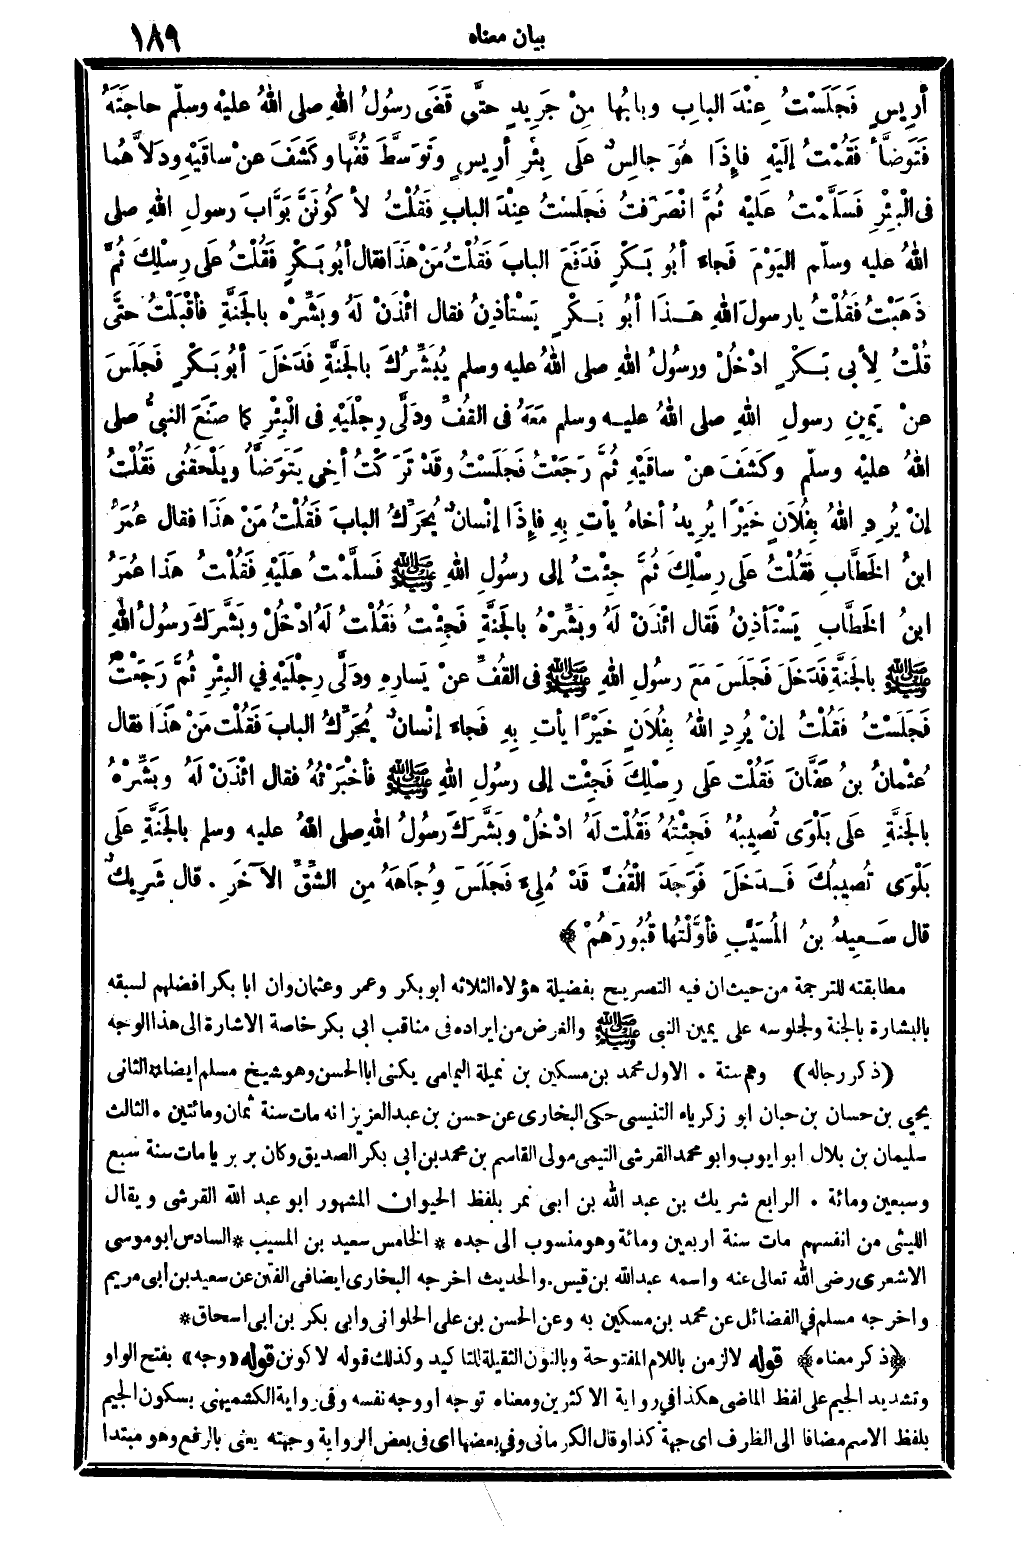 بيان معناه ١٨٩
أَرِيسٍ فَجَلَسْتُ عِنْدَ البابِ وبابُها مِنْ جَرِيدٍ حتَّى قَضَى رسولُ اللهِ صلى اللهُ عليْه وسلّم حاجَتَهُ
فَتَوَضَّأَ فَقُمْتُ إلَيْهِ فإِذَا هُوَ جالِسٌ عَلَى بِئْرِ أرِيسٍ وتَوَسَّطَ قُفَّها وكَشَفَ عَنْ ساقَيْهِ ودَلَّاهُما
فى الْبِئْرِ فَسَلَّمْتُ عَلَيْهِ ثُمَّ انْصَرَفْتُ فَجلَسْتُ عِنْدَ البابِ فَقُلْتُ لأَكُونَنَّ بَوَّابَ رسولِ اللهِ صلى
اللهُ عليه وسلّم اليَوْمَ فَجاءَ أبُو بَكْرٍ فَدَفَعَ البابَ فَقُلْتُ مَنْ هَذَا فقال أبُو بَكْرٍ فَقُلْتُ عَلَى رِسْلِكَ ثُمَّ
ذَهَبْتُ فَقُلْتُ يا رسولَ اللهِ هَـذَا أبُو بَـكْرٍ يَسْتأذِنُ فقال ائْذَنْ لَهُ وبَشِّرْه بالجَنَّةِ فأقْبَلْتُ حتَّى
قُلْتُ لِأَبى بَـكْرٍ ادْخُلْ ورسُولُ اللهِ صلى اللهُ عليه وسلم يُبَشِّرُكَ بالجَنَّةِ فَدَخَلَ أبُو بَكْرٍ فَجَلَسَ
عنْ يَمِينِ رسولِ اللهِ صلى اللهُ عليـه وسلم مَعَهُ فى القُفِّ ودَلَّى رِجْلَيْهِ فى الْبِئْرِ كما صَنَعَ النبىُّ صلى
اللهُ عليْه وسلّم وكَشَفَ عنْ ساقَيْهِ ثُمَّ رَجَعْتُ فَجَلَسْتُ وقَدْ تَرَكْتُ أخِى يَتَوَضَّأُ ويَلْحَقُنى فَقُلْتُ
إنْ يُرِدِ اللهُ بِفُلاَنٍ خَيْرًا يُرِيدُ أخاهُ يأتِ بِهِ فإِذَا إنْسانٌ يُحَرِّكُ البابَ فَقُلْتُ مَنْ هَذَا فقال عُمَرُ
ابنُ الخَطَّابِ فَقُلْتُ عَلَى رِسلِكَ ثُمَّ جِئْتُ إلى رسُولِ اللهِ ﷺ فَسلَّمْتُ عَلَيْهِ فَقُلْتُ هذَا عُمَرُ
ابنُ الخَطَّابِ يَسْتَأذِنُ فَقال ائْذَنْ لَهُ وبَشِّرْهُ بالجَنَّةِ فَجِئْتُ فَقُلْتُ لَهُ ادْخُلْ وبَشَّرَكَ رسُولُ اللهِ
ﷺ بالجَنَّةِ فَدَخَلَ فَجَلَسَ مَعَ رسُولِ اللهِ ﷺ فى القُفِّ عنْ يَسارِهِ ودَلَّى رِجْلَيْهِ فِي البِئْرِ ثُمَّ رَجَعْتُ
فَجَلَسْتُ فَقُلْتُ إنْ يُرِدِ اللهُ بِفُلاَنٍ خَيْرًا يأتِ بِهِ فَجاءَ إنْسانٌ يُحَرِّكُ البابَ فَقُلْتُ مَنْ هَذَا فقال
عُثْمانُ بنُ عَفَّانَ فَقُلْت عَلَى رِسْلِكَ فَجِئْت إلى رسُولِ اللهِ ﷺ فأخْبَرْتُهُ فقال ائْذَنْ لَهُ وبَشِّرْهُ
بالجَنَّةِ عَلَى بَلْوَى تُصِيبُهُ فَجِئْتُهُ فَقُلْت لَهُ ادْخُلْ وبَشَّرَكَ رسُولُ اللهِ صلى اللهُ عليه وسلم بالجَنَّةِ عَلَى
بَلْوَى تُصِيبُكَ فَـدَخَلَ فَوَجَدَ الْقُفَّ قَدْ مُلِىءَ فَجَلَسَ وِجَاهَهُ مِنِ الشِّقِّ الآخَرِ . قال شَرِيكٌ
قال سَـعِيدُ بنُ المُسَيَّبِ فأوَّلْتُها قُبُورَهُمْ ﴾
مطابقته للترجمة من حيث ان فيه التصريح بفضيلة هؤلاء الثلاثه ابو بكر وعمر وعثمان وان ابا بكر افضلهم لسبقه
بالبشارة بالجنة ولجلوسه على يمين النبى ﷺ والغرض من ايراده فى مناقب ابى بكر خاصة الاشارة الى هذا الوجه
(ذكر رجاله) وهم ستة • الاول محمد بن مسكين بن نميلة اليمامى يكنى ابا الحسن وهو شيخ مسلم ايضا * الثانى
يحيى بن حسان بن حبان ابو زكرياء التنيسى حكى البخارى عن حسن بن عبد العزيز انه مات سنة ثمان ومائتين • الثالث
سليمان بن بلال ابو ايوب وابو محمد القرشى التيمى مولى القاسم بن محمد بن أبى بكر الصديق وكان بربريا مات سنة سبع
وسبعين ومائة • الرابع شريك بن عبد الله بن ابى نمر بلفظ الحيوان المشهور ابو عبد الله القرشى ويقال
الليثى من انفسهم مات سنة اربعين ومائة وهو منسوب الى جده * الخامس سعيد بن المسيب * السادس ابو موسى
الاشعرى رضى الله تعالى عنه واسمه عبد الله بن قيس. والحديث اخرجه البخارى ايضا فى الفتن عن سعيد بن ابى مريم
واخرجه مسلم في الفضائل عن محمد بن مسكين به وعن الحسن بن على الحلوانى وابى بكر بن ابى اسحاق *
﴿ذكر معناه﴾ قوله لالزمن باللام المفتوحة وبالنون الثقيلة للتاكيد وكذلك قوله لاكونن قوله «وجه» بفتح الواو
وتشديد الجيم على لفظ الماضى هكذا في رواية الاكثرين ومعناه توجه او وجه نفسه وفى رواية الكشميهنى بسكون الجيم
بلفظ الاسم مضافا الى الظرف اى جهة كذا وقال الكرمانى وفي بعضها اى فى بعض الرواية وجهته يعنى بالرفع وهو مبتدا